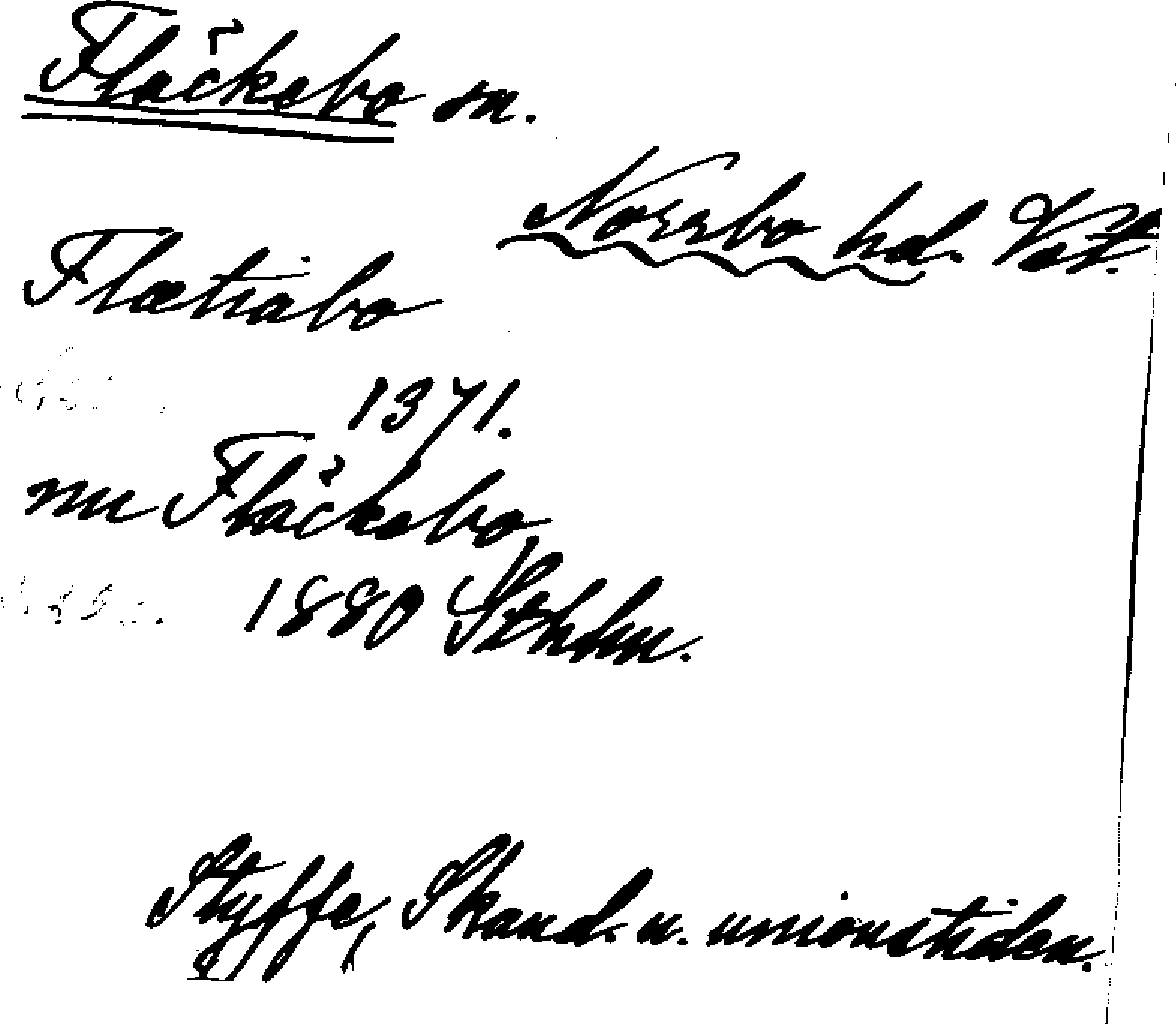 Fläckebo sn.
Norrbo hd. Vstm.
Flætiabo
1371.
nu Fläckebo,
1880 Sthlm.
Styffe, Skand. u. unionstiden.